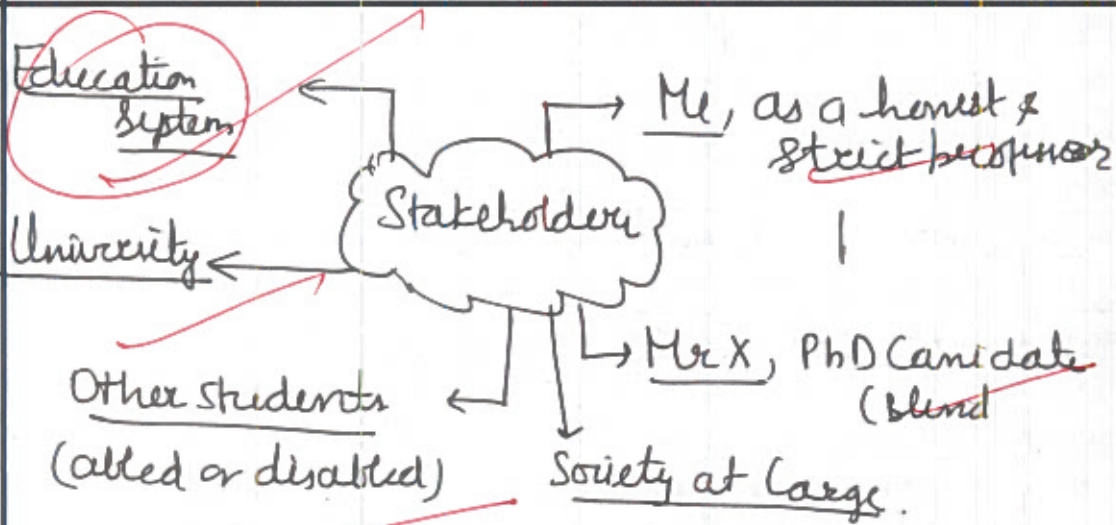 Education
System
Me, as a honest &
strict professor
Stakeholders
University
Mr X, PhD Canidate
(blind
Other students
(abled or disabled)
Society at large.